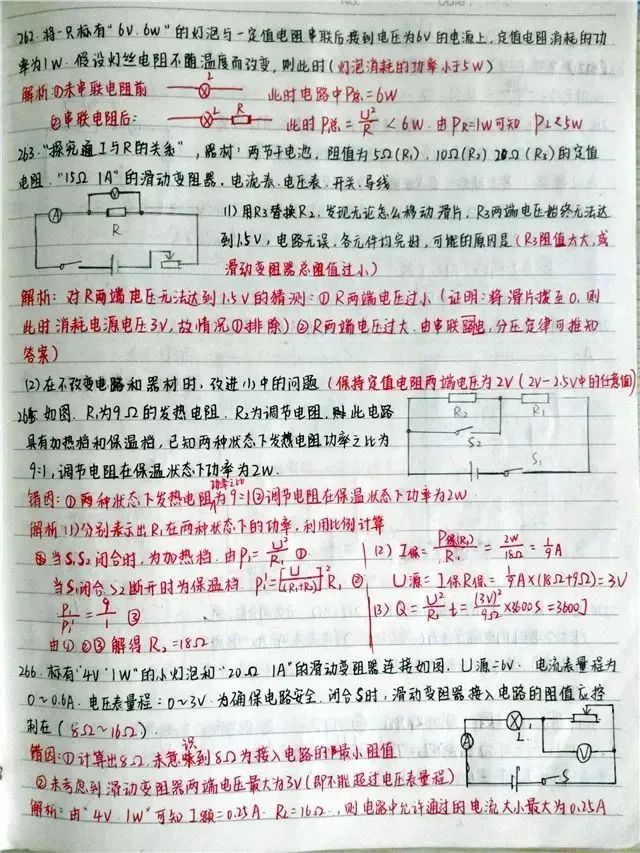 262. 将一只标有"6V. 6W"的灯泡与一定值电阻串联后接到电压为6V的电源上, 定值电阻消耗的功
率为1W. 假设灯丝电阻不随温度而改变, 则此时(灯泡消耗的功率小于5W)
解析: ①未串联电阻前 L 此时电路中P总=6W
②串联电阻后: L R 此时P总=U²/R<6W. 由PR=1W可知 PL<5W
263. "探究通I与R的关系", 器材: 两节干电池, 阻值为5Ω(R₁). 10Ω(R₂) 20Ω(R₃)的定值
电阻. "15Ω 1A"的滑动变阻器, 电流表. 电压表. 开关. 导线
V
A
R
(1) 用R3替换R2, 发现无论怎么移动滑片, R3两端电压始终无法达
到1.5V, 电路无误, 各元件均完好, 可能的原因是(R3阻值太大, 或
滑动变阻器总阻值过小)
解析: 对R两端电压无法达到1.5V的猜测: ①R两端电压过小(证明: 将滑片拨至0, 则
此时消耗电源电压3V, 故情况①排除) ②R两端电压过大. 由串联 分压定律可推知
答案)
(2) 在不改变电路和器材时, 改进(1)中的问题 (保持定值电阻两端电压为2V (2V-2.5V中的任意值)
如图. R₁为9Ω的发热电阻. R₂为调节电阻, 此电路
具有加热档和保温档, 已知两种状态下发热电阻功率之比为
9:1, 调节电阻在保温状态下功率为2W.
R₂ R₁
S₂
S₁
错因: ①两种状态下发热电阻功率之比为9:1②调节电阻在保温状态下功率为2W
解析 (1)分别表示出R₁在两种状态下的功率, 利用比例计算
当S₁S₂闭合时, 为加热档. 由P₁=U²/R₁ ①
当S₁闭合S2断开时为保温档. P₁'=[U/(R₁+R₂)]²R₁ ②
P₁/P₁'=9/1 ③
由①②③解得R₂=18Ω
(2) I保=P保(R₂)/R₁=2W/18Ω=1/9A
U源=I保R保=1/9A×(18Ω+9Ω)=3V
(3) Q=U²/R₁t=(3V)²/9Ω×3600S=3600J
266. 标有"4V 1W"的小灯泡和"20Ω 1A"的滑动变阻器连接如图. U源=6V. 电流表量程为
0~0.6A. 电压表量程=0~3V. 为确保电路安全. 闭合S时, 滑动变阻器接入电路的阻值应控
制在(8Ω~16Ω).
A
L
V
S
错因: ①计算出8Ω. 未意识到8Ω为接入电路的最小阻值
②未考虑到滑动变阻器两端电压最大为3V(即不能超过电压表量程)
解析: 由"4V 1W"可知I额=0.25A. RL=16Ω, 则电路中允许通过的电流大小最大为0.25A